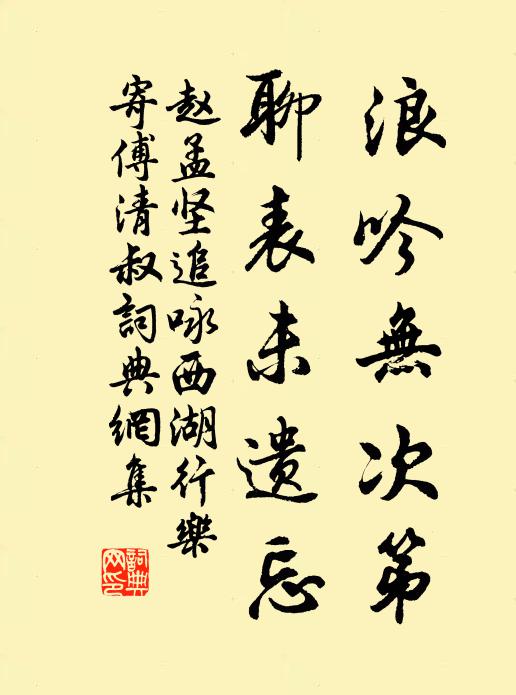 浪吟無次第
聊表未遗忘
赵孟坚追咏西湖行樂
寄傅清叔詞典網集
詞典网印